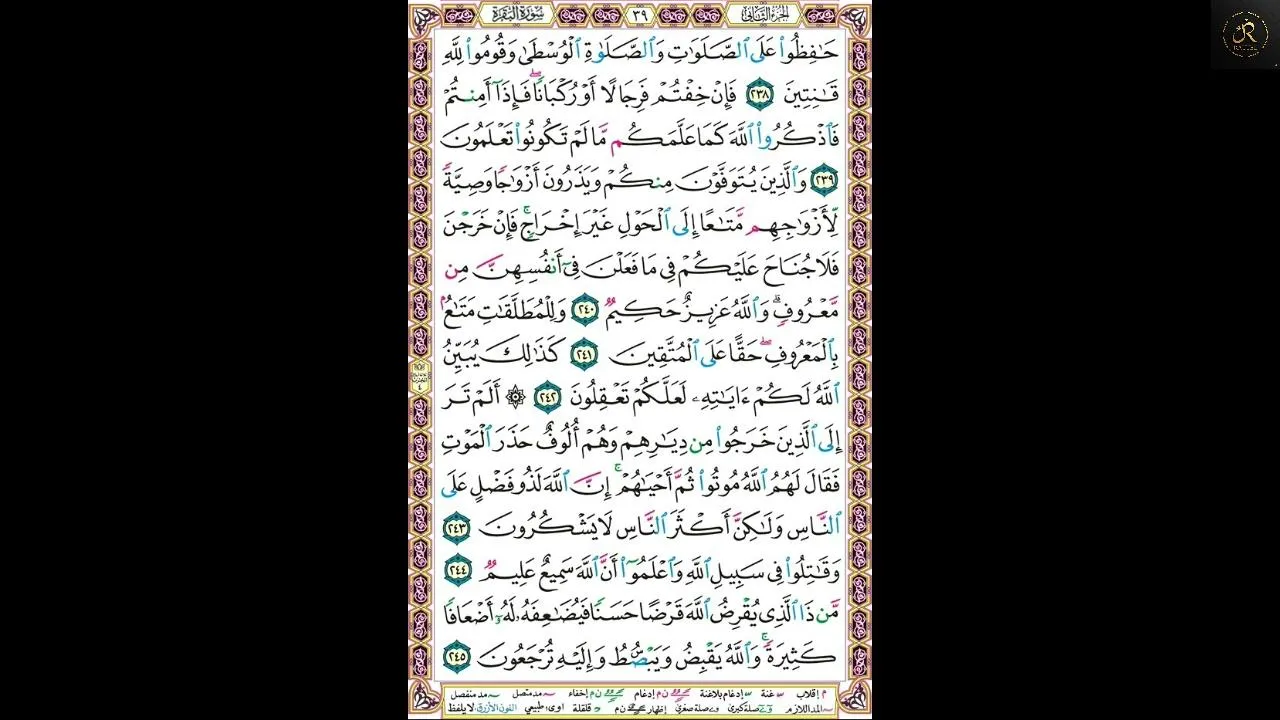 الجزء الثاني ٣٩ سورة البقرة
حَٰفِظُوا۟ عَلَى ٱلصَّلَوَٰتِ وَٱلصَّلَوٰةِ ٱلْوُسْطَىٰ وَقُومُوا۟ لِلَّهِ
قَٰنِتِينَ ٢٣٨ فَإِنْ خِفْتُمْ فَرِجَالًا أَوْ رُكْبَانًا ۖ فَإِذَآ أَمِنتُمْ
فَٱذْكُرُوا۟ ٱللَّهَ كَمَا عَلَّمَكُم مَّا لَمْ تَكُونُوا۟ تَعْلَمُونَ
٢٣٩ وَٱلَّذِينَ يُتَوَفَّوْنَ مِنكُمْ وَيَذَرُونَ أَزْوَٰجًا وَصِيَّةً
لِّأَزْوَٰجِهِم مَّتَٰعًا إِلَى ٱلْحَوْلِ غَيْرَ إِخْرَاجٍ ۚ فَإِنْ خَرَجْنَ
فَلَا جُنَاحَ عَلَيْكُمْ فِى مَا فَعَلْنَ فِىٓ أَنفُسِهِنَّ مِن
مَّعْرُوفٍ ۗ وَٱللَّهُ عَزِيزٌ حَكِيمٌ ٢٤٠ وَلِلْمُطَلَّقَٰتِ مَتَٰعٌۢ
بِٱلْمَعْرُوفِ ۖ حَقًّا عَلَى ٱلْمُتَّقِينَ ٢٤١ كَذَٰلِكَ يُبَيِّنُ
ٱللَّهُ لَكُمْ ءَايَٰتِهِۦ لَعَلَّكُمْ تَعْقِلُونَ ٢٤٢ ۞ أَلَمْ تَرَ
إِلَى ٱلَّذِينَ خَرَجُوا۟ مِن دِيَٰرِهِمْ وَهُمْ أُلُوفٌ حَذَرَ ٱلْمَوْتِ
فَقَالَ لَهُمُ ٱللَّهُ مُوتُوا۟ ثُمَّ أَحْيَٰهُمْ ۚ إِنَّ ٱللَّهَ لَذُو فَضْلٍ عَلَى
ٱلنَّاسِ وَلَٰكِنَّ أَكْثَرَ ٱلنَّاسِ لَا يَشْكُرُونَ ٢٤٣
وَقَٰتِلُوا۟ فِى سَبِيلِ ٱللَّهِ وَٱعْلَمُوٓا۟ أَنَّ ٱللَّهَ سَمِيعٌ عَلِيمٌ ٢٤٤
مَّن ذَا ٱلَّذِى يُقْرِضُ ٱللَّهَ قَرْضًا حَسَنًا فَيُضَٰعِفَهُۥ لَهُۥٓ أَضْعَافًا
كَثِيرَةً ۚ وَٱللَّهُ يَقْبِضُ وَيَبْصُۜطُ وَإِلَيْهِ تُرْجَعُونَ ٢٤٥
م إقلاب غنة إدغام بلاغنة ن م إدغام ن م إخفاء مد متصل مد منفصل
المد اللازم صلة كبرى صلة صغرى إظهار ن م قلقلة اوى طبيعي اللون الأزرق لا يلفظ